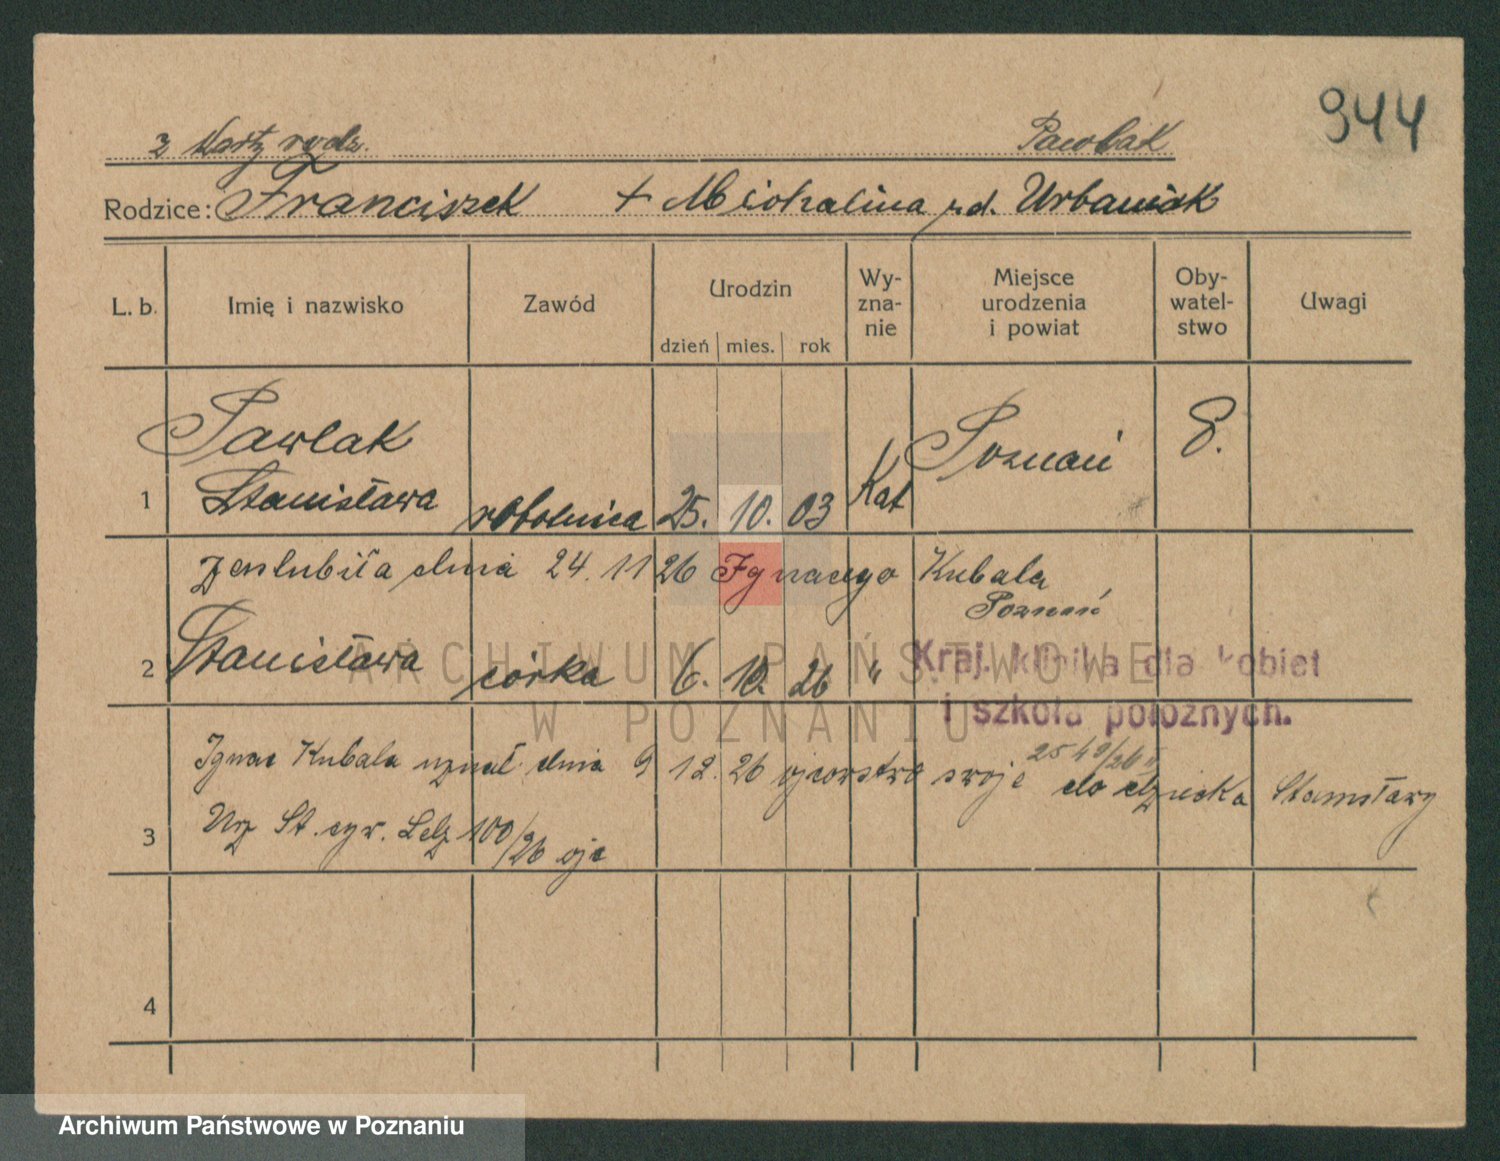 944
z Karty rodz. Pawlak
Rodzice: Franciszek + Michalina rd. Urbaniak
L. b. Imię i nazwisko Zawód Urodzin Wy- zna- nie Miejsce urodzenia i powiat Oby- watel- stwo Uwagi
dzień mies. rok
Pawlak Poznań
1 Stanisława robotnica 25. 10. 03 Kat
Zaslubiła dnia 24. 11 26 Ignacego Kubala
Poznań
2 Stanisława córka 6. 10. 26 "
Kraj. klinika dla kobiet
i szkoła położnych.
2549/26
Ignac Kubala uznał dnia 9 12. 26 ojcorstwo swoje do dziecka Stanisławy
3 Urz St. cyw. Lelz 100/26
4
ARCHIWUM PAŃSTWOWE
W POZNANIU
Archiwum Państwowe w Poznaniu